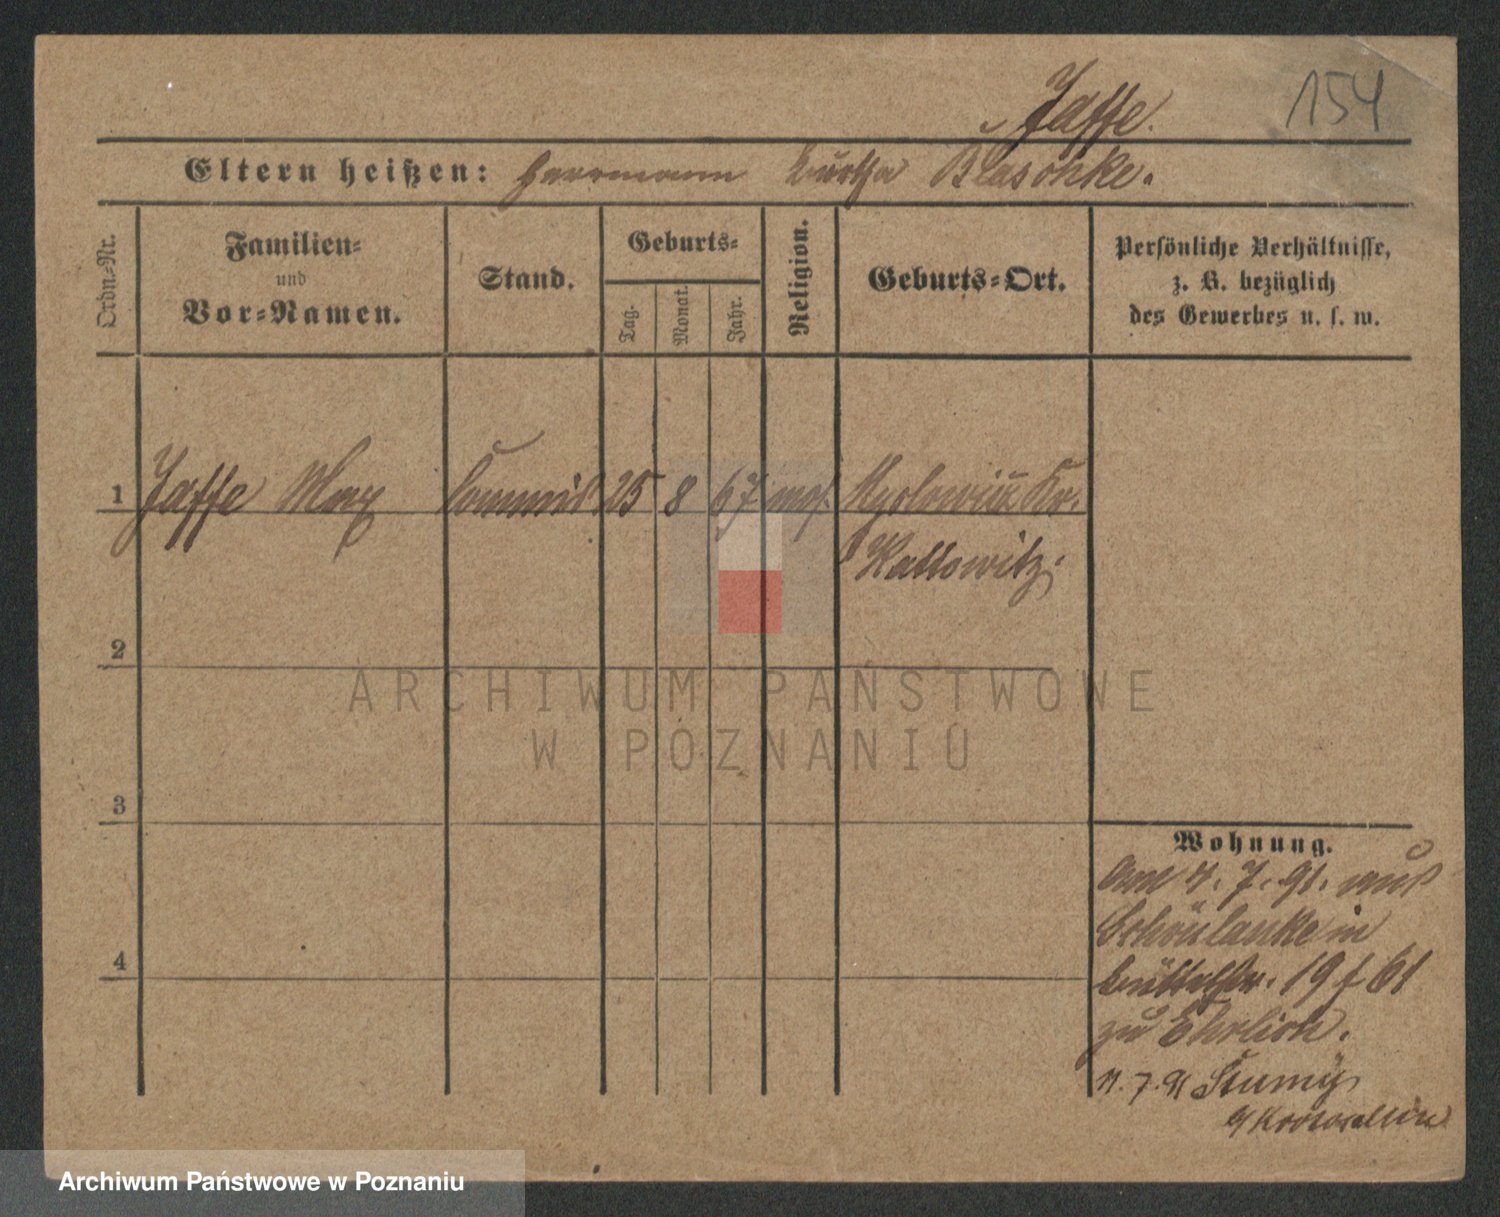 154
Jaffe.
Eltern heißen: Herrmann Bertha Blaschke.
Ordn.-Nr.
Familien- und Vor-Namen.
Stand.
Geburts-
Tag.
Monat.
Jahr.
Religion.
Geburts-Ort.
Persönliche Verhältnisse,
z. B. bezüglich
des Gewerbes u. s. w.
1 Jaffe Max Commis 25 8 67 mos. Myslowitz Kr.
Kattowitz.
2
ARCHIWUM PAŃSTWOWE
W POZNANIU
3
Wohnung.
Am 4. 7. 91. aus
Schönlanke in
Büttelstr. 19 f 61
4
zu Ehrlich.
11. 7. 91
Archiwum Państwowe w Poznaniu